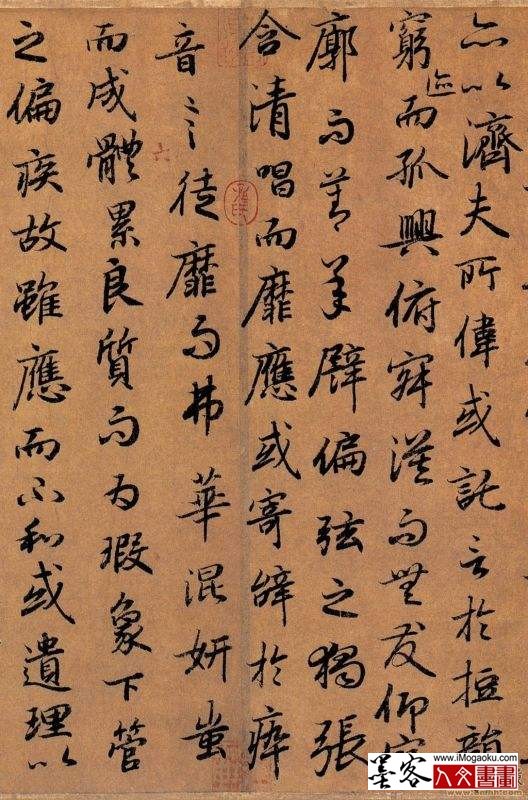 亦以濟夫所偉或託言於短韻
窮迹而孤興俯寂漠而無友仰寥
廓而莫承譬偏弦之獨張
含清唱而靡應或寄辭於瘁
音言徒靡而弗華混妍蚩
而成體累良質而為瑕象下管
之偏疾故雖應而不和或遺理以
墨客
www.iMogaoku.com
人文書畫